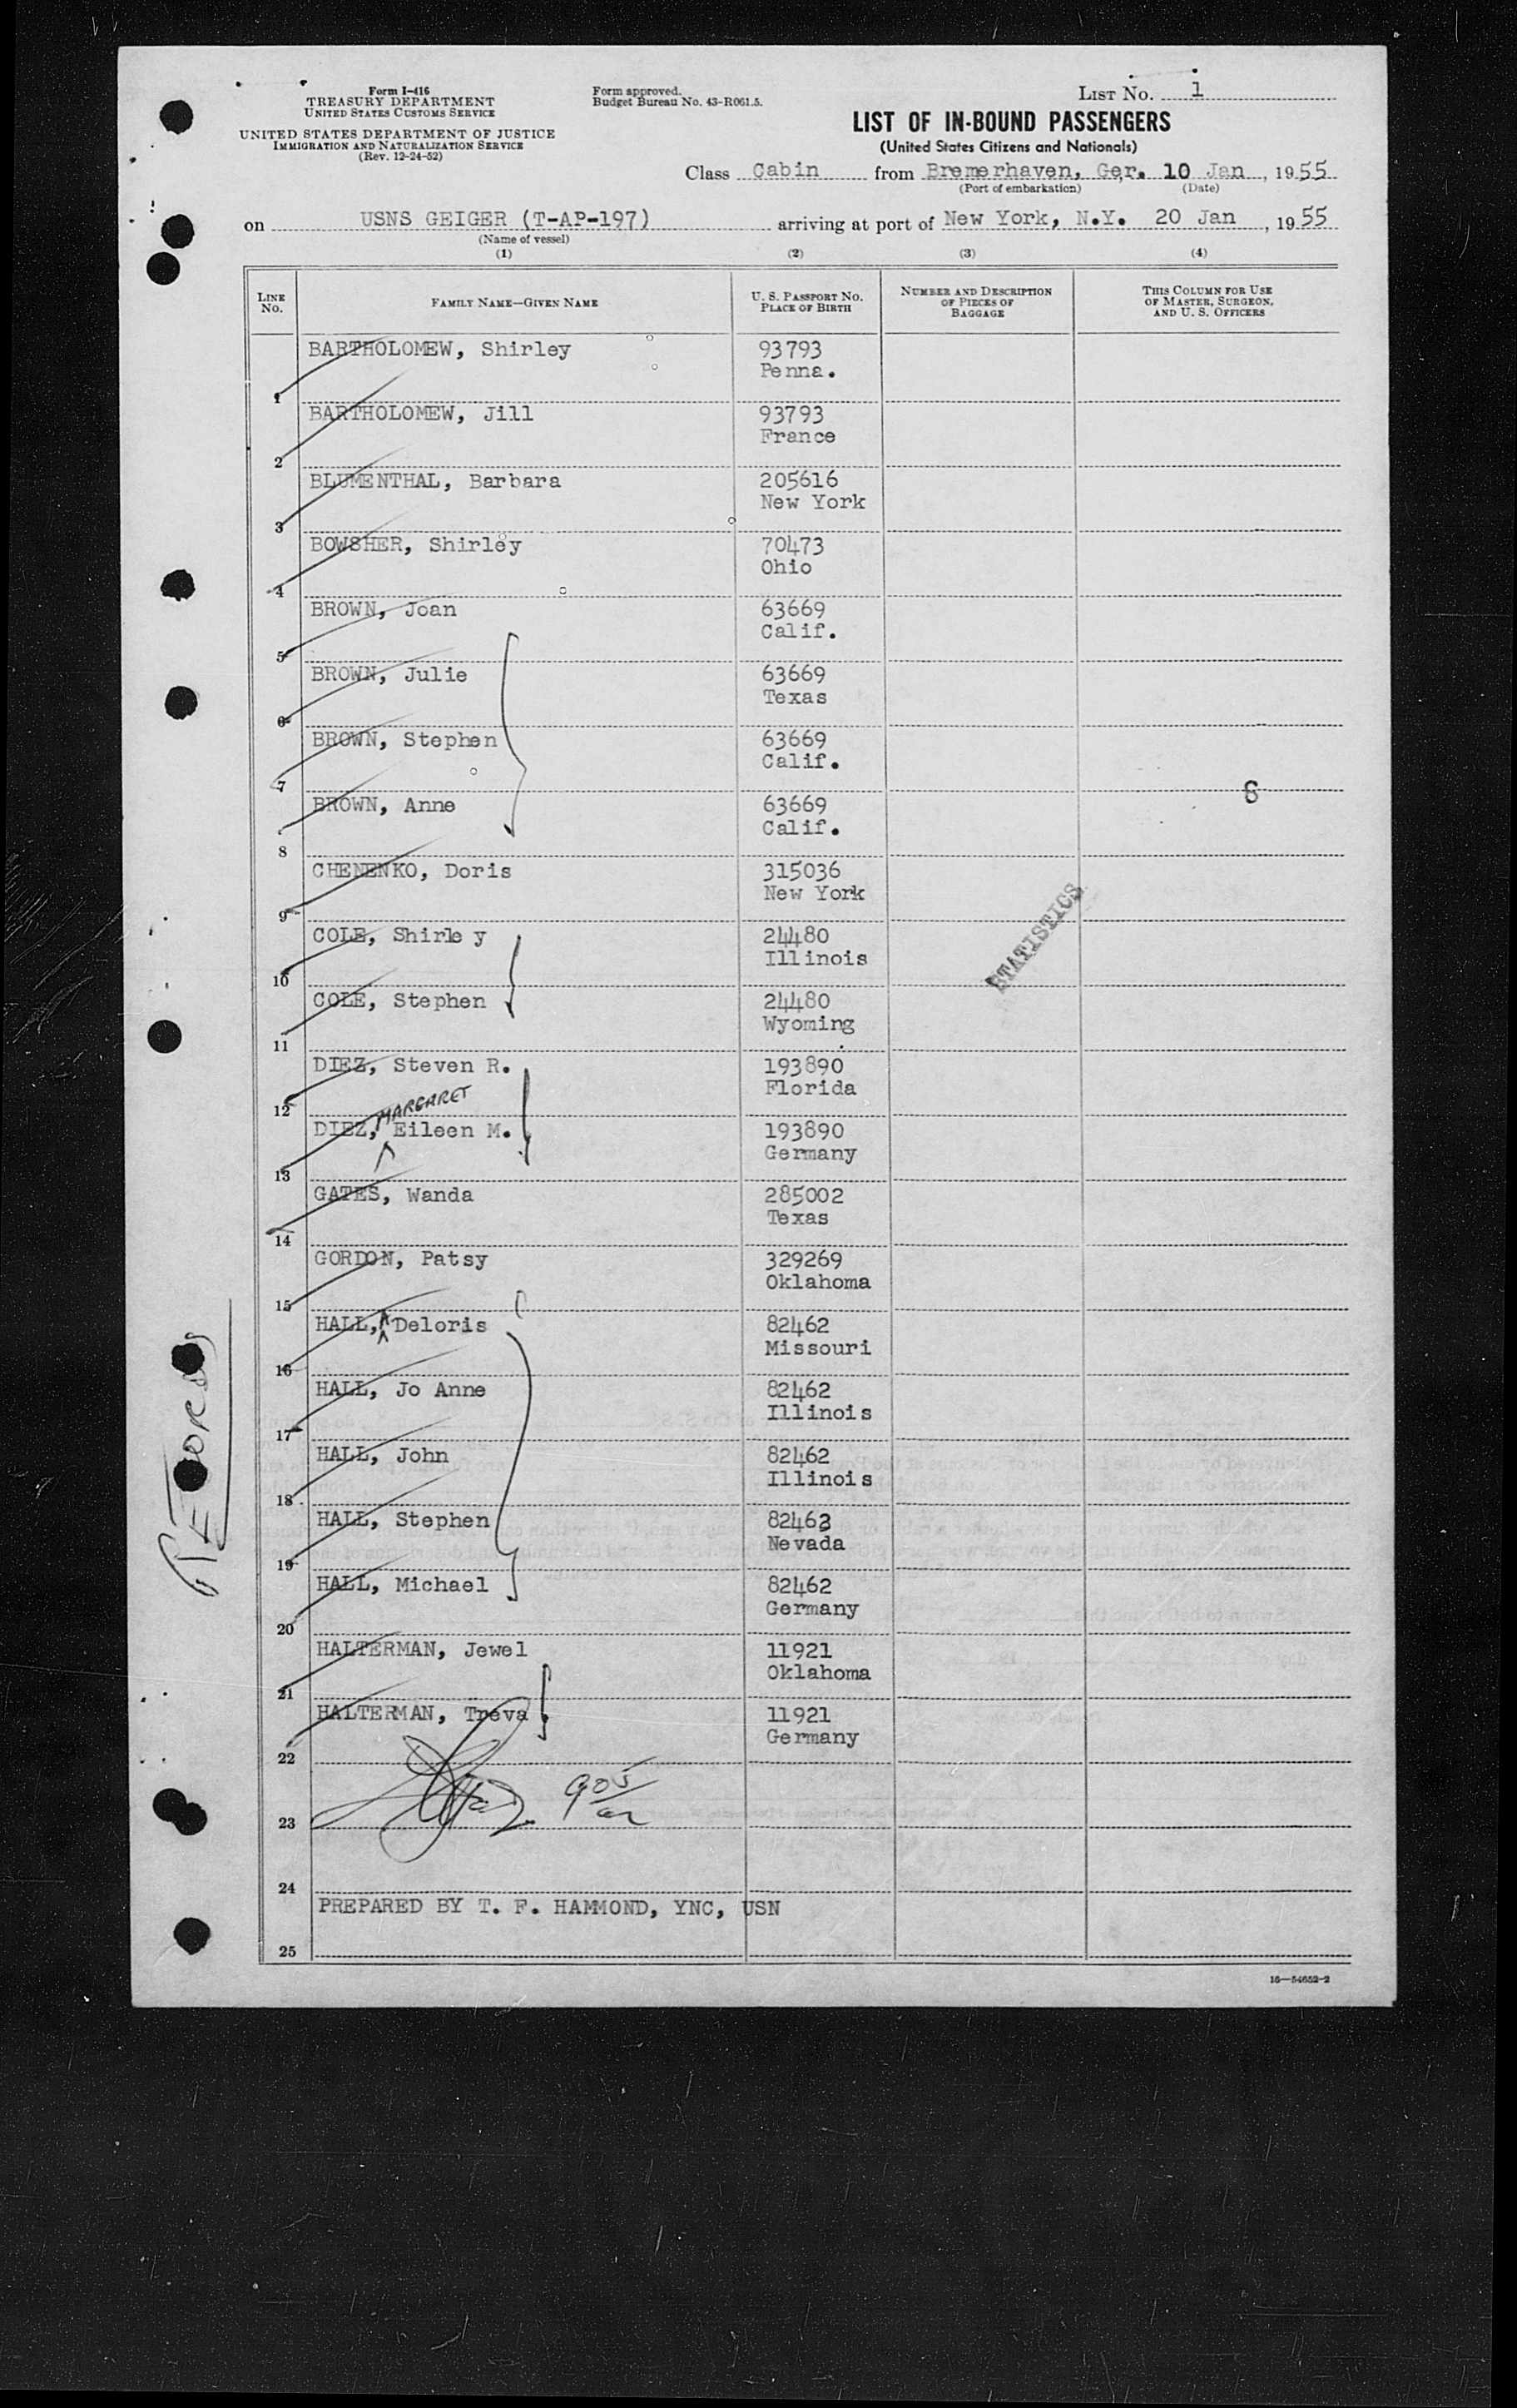 Form I-416
TREASURY DEPARTMENT
UNITED STATES CUSTOMS SERVICE
UNITED STATES DEPARTMENT OF JUSTICE
IMMIGRATION AND NATURALIZATION SERVICE
(Rev. 12-24-52)
Form approved.
Budget Bureau No. 43-R061.5.
LIST NO. 1
LIST OF IN-BOUND PASSENGERS
(United States Citizens and Nationals)
Class Cabin from Bremerhaven, Ger. 10 Jan, 1955
(Port of embarkation) (Date)
on USNS GEIGER (T-AP-197) arriving at port of New York, N.Y. 20 Jan, 1955
(Name of vessel)
(1) (2) (3) (4)
LINE NO. FAMILY NAME—GIVEN NAME U. S. PASSPORT NO. PLACE OF BIRTH NUMBER AND DESCRIPTION OF PIECES OF BAGGAGE THIS COLUMN FOR USE OF MASTER, SURGEON, AND U. S. OFFICERS
BARTHOLOMEW, Shirley 93793
1 Penna.
BARTHOLOMEW, Jill 93793
2 France
BLUMENTHAL, Barbara 205616
3 New York
BOWSHER, Shirley 70473
4 Ohio
BROWN, Joan 63669
5 Calif.
BROWN, Julie 63669
6 Texas
BROWN, Stephen 63669
7 Calif.
BROWN, Anne 63669
8 Calif.
CHENENKO, Doris 315036
9 New York
STATISTICS
COLE, Shirley 24480
10 Illinois
COLE, Stephen 24480
11 Wyoming
DIEZ, Steven R. 193890
12 Florida
MARGARET
DIEZ, Eileen M. 193890
13 Germany
GATES, Wanda 285002
14 Texas
GORDON, Patsy 329269
15 Oklahoma
HALL, Deloris 82462
16 Missouri
HALL, Jo Anne 82462
17 Illinois
HALL, John 82462
18 Illinois
HALL, Stephen 82463
19 Nevada
HALL, Michael 82462
20 Germany
HALTERMAN, Jewel 11921
21 Oklahoma
HALTERMAN, Treva 11921
22 Germany
905
23
24
PREPARED BY T. F. HAMMOND, YNC, USN
25
16—54652-2